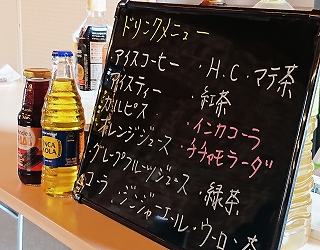 ドリンクメニュー
・アイスコーヒー ・H.C ・マテ茶
・アイスティー ・紅茶
・カルピス ・インカコーラ
・オレンジジュース ・チチャモラーダ
・グレープフルーツジュース ・緑茶
・コーラ ・ジンジャーエール・ウーロン茶
INCA
KOLA